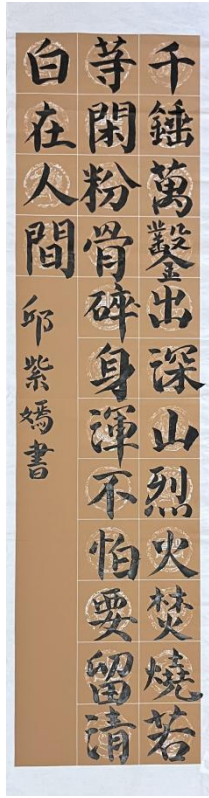 千錘萬鑿出深山烈火焚燒若
等閑粉骨碎身渾不怕要留清
白在人間
邱紫嫣書